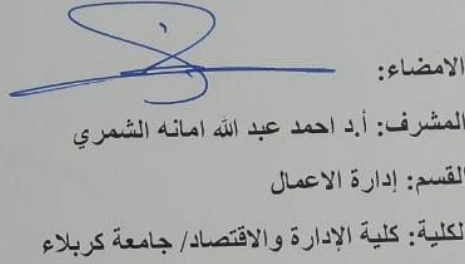 الامضاء:
المشرف: أ.د احمد عبد الله امانه الشمري
القسم: إدارة الاعمال
لكلية: كلية الإدارة والاقتصاد/ جامعة كربلاء